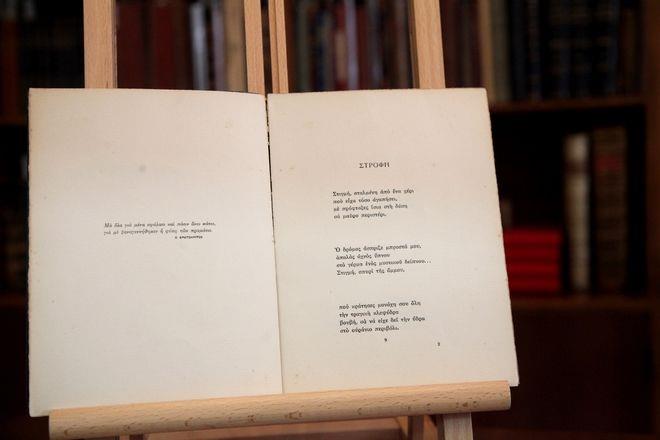 Μὰ ὅλα γιὰ μένα σφάλασι καὶ πάσιν ἄνω κάτω,
γιὰ μὲ ξαναγεννήθηκεν ἡ φύση τῶν πραμάτω.
Ο ΕΡΩΤΟΚΡΙΤΟΣ
ΣΤΡΟΦΗ
Στιγμή, σταλμένη ἀπὸ ἕνα χέρι
ποὺ εἶχα τόσο ἀγαπήσει,
μὲ πρόφταξες ἴσια στὴ δύση
σὰ μαῦρο περιστέρι.
Ὁ δρόμος ἄσπριζε μπροστά μου,
ἁπαλὸς ἀχνὸς ὕπνου
στὸ γέρμα ἑνὸς μυστικοῦ δείπνου...
Στιγμή, σπυρὶ τῆς ἄμμου,
ποὺ κράτησες μονάχη σου ὅλη
τὴν τραγικὴ κλεψύδρα
βουβή, σὰ νὰ εἶχε δεῖ τὴν ὕδρα
στὸ οὐράνιο περιβόλι.
9
2